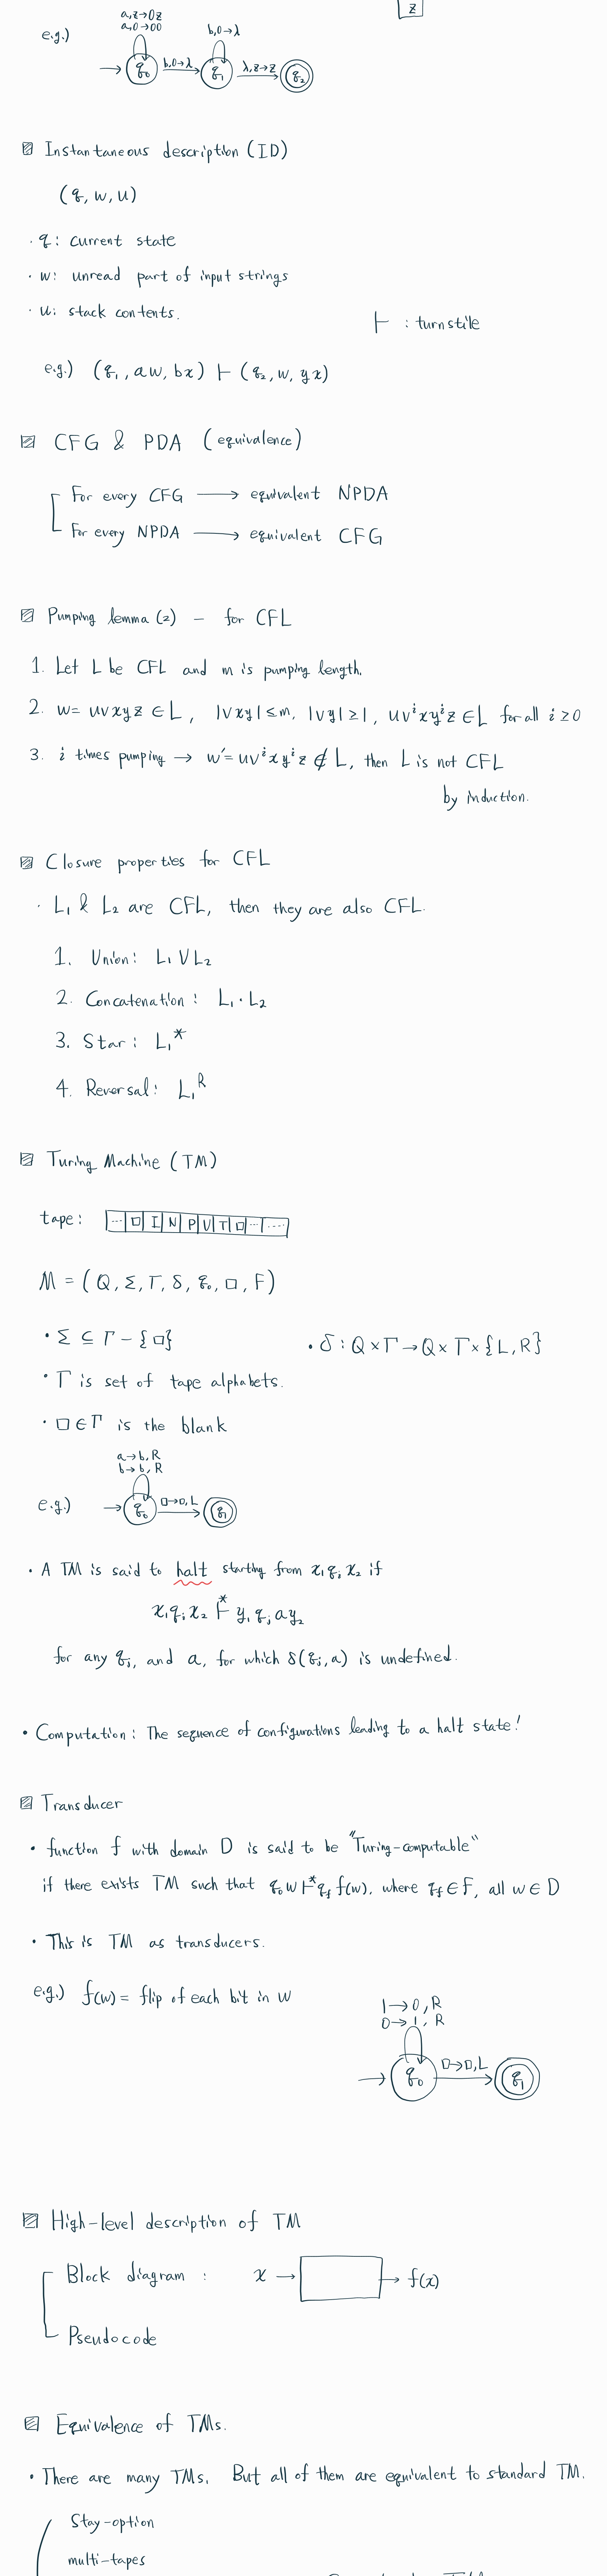 z
a,z→0z
a,0→00
b,0→λ
e.g.) q₀ b,0→λ q₁ λ,z→z q₂
Instantaneous description (ID)
(q, w, u)
· q: current state
· w: unread part of input strings
· u: stack contents.
⊢ : turnstile
e.g.) (q₁, aw, bx) ⊢ (q₂, w, yx)
CFG & PDA (equivalence)
For every CFG → equivalent NPDA
For every NPDA → equivalent CFG
Pumping lemma (2) - for CFL
1. Let L be CFL and m is pumping length.
2. w = uvxyz ∈ L, |vxy| ≤ m, |vy| ≥ 1, uvⁱxyⁱz ∈ L for all i ≥ 0
3. i times pumping → w' = uvⁱxyⁱz ∉ L, then L is not CFL
by induction.
Closure properties for CFL
· L₁ & L₂ are CFL, then they are also CFL.
1. Union: L₁ ∪ L₂
2. Concatenation: L₁·L₂
3. Star: L₁*
4. Reversal: L₁ᴿ
Turing Machine (TM)
tape: ... □ I N P U T □ ... ...
M = (Q, Σ, Γ, δ, q₀, □, F)
· Σ ⊆ Γ - {□}
· δ: Q×Γ → Q×Γ×{L,R}
· Γ is set of tape alphabets.
· □ ∈ Γ is the blank
a→b, R
b→b, R
e.g.) q₀ □→□, L q₁
· A TM is said to halt starting from x₁qᵢx₂ if
x₁qᵢx₂ ⊢* y₁qⱼay₂
for any qⱼ, and a, for which δ(qⱼ, a) is undefined.
· Computation: The sequence of configurations leading to a halt state!
Transducer
· function f with domain D is said to be "Turing-computable"
if there exists TM such that q₀w ⊢* q_f f(w), where q_f ∈ F, all w ∈ D
· This is TM as transducers.
e.g.) f(w) = flip of each bit in w
1→0, R
0→1, R
q₀ □→□, L q₁
High-level description of TM
Block diagram : x → → f(x)
Pseudocode
Equivalence of TMs.
· There are many TMs. But all of them are equivalent to standard TM.
Stay-option
multi-tapes